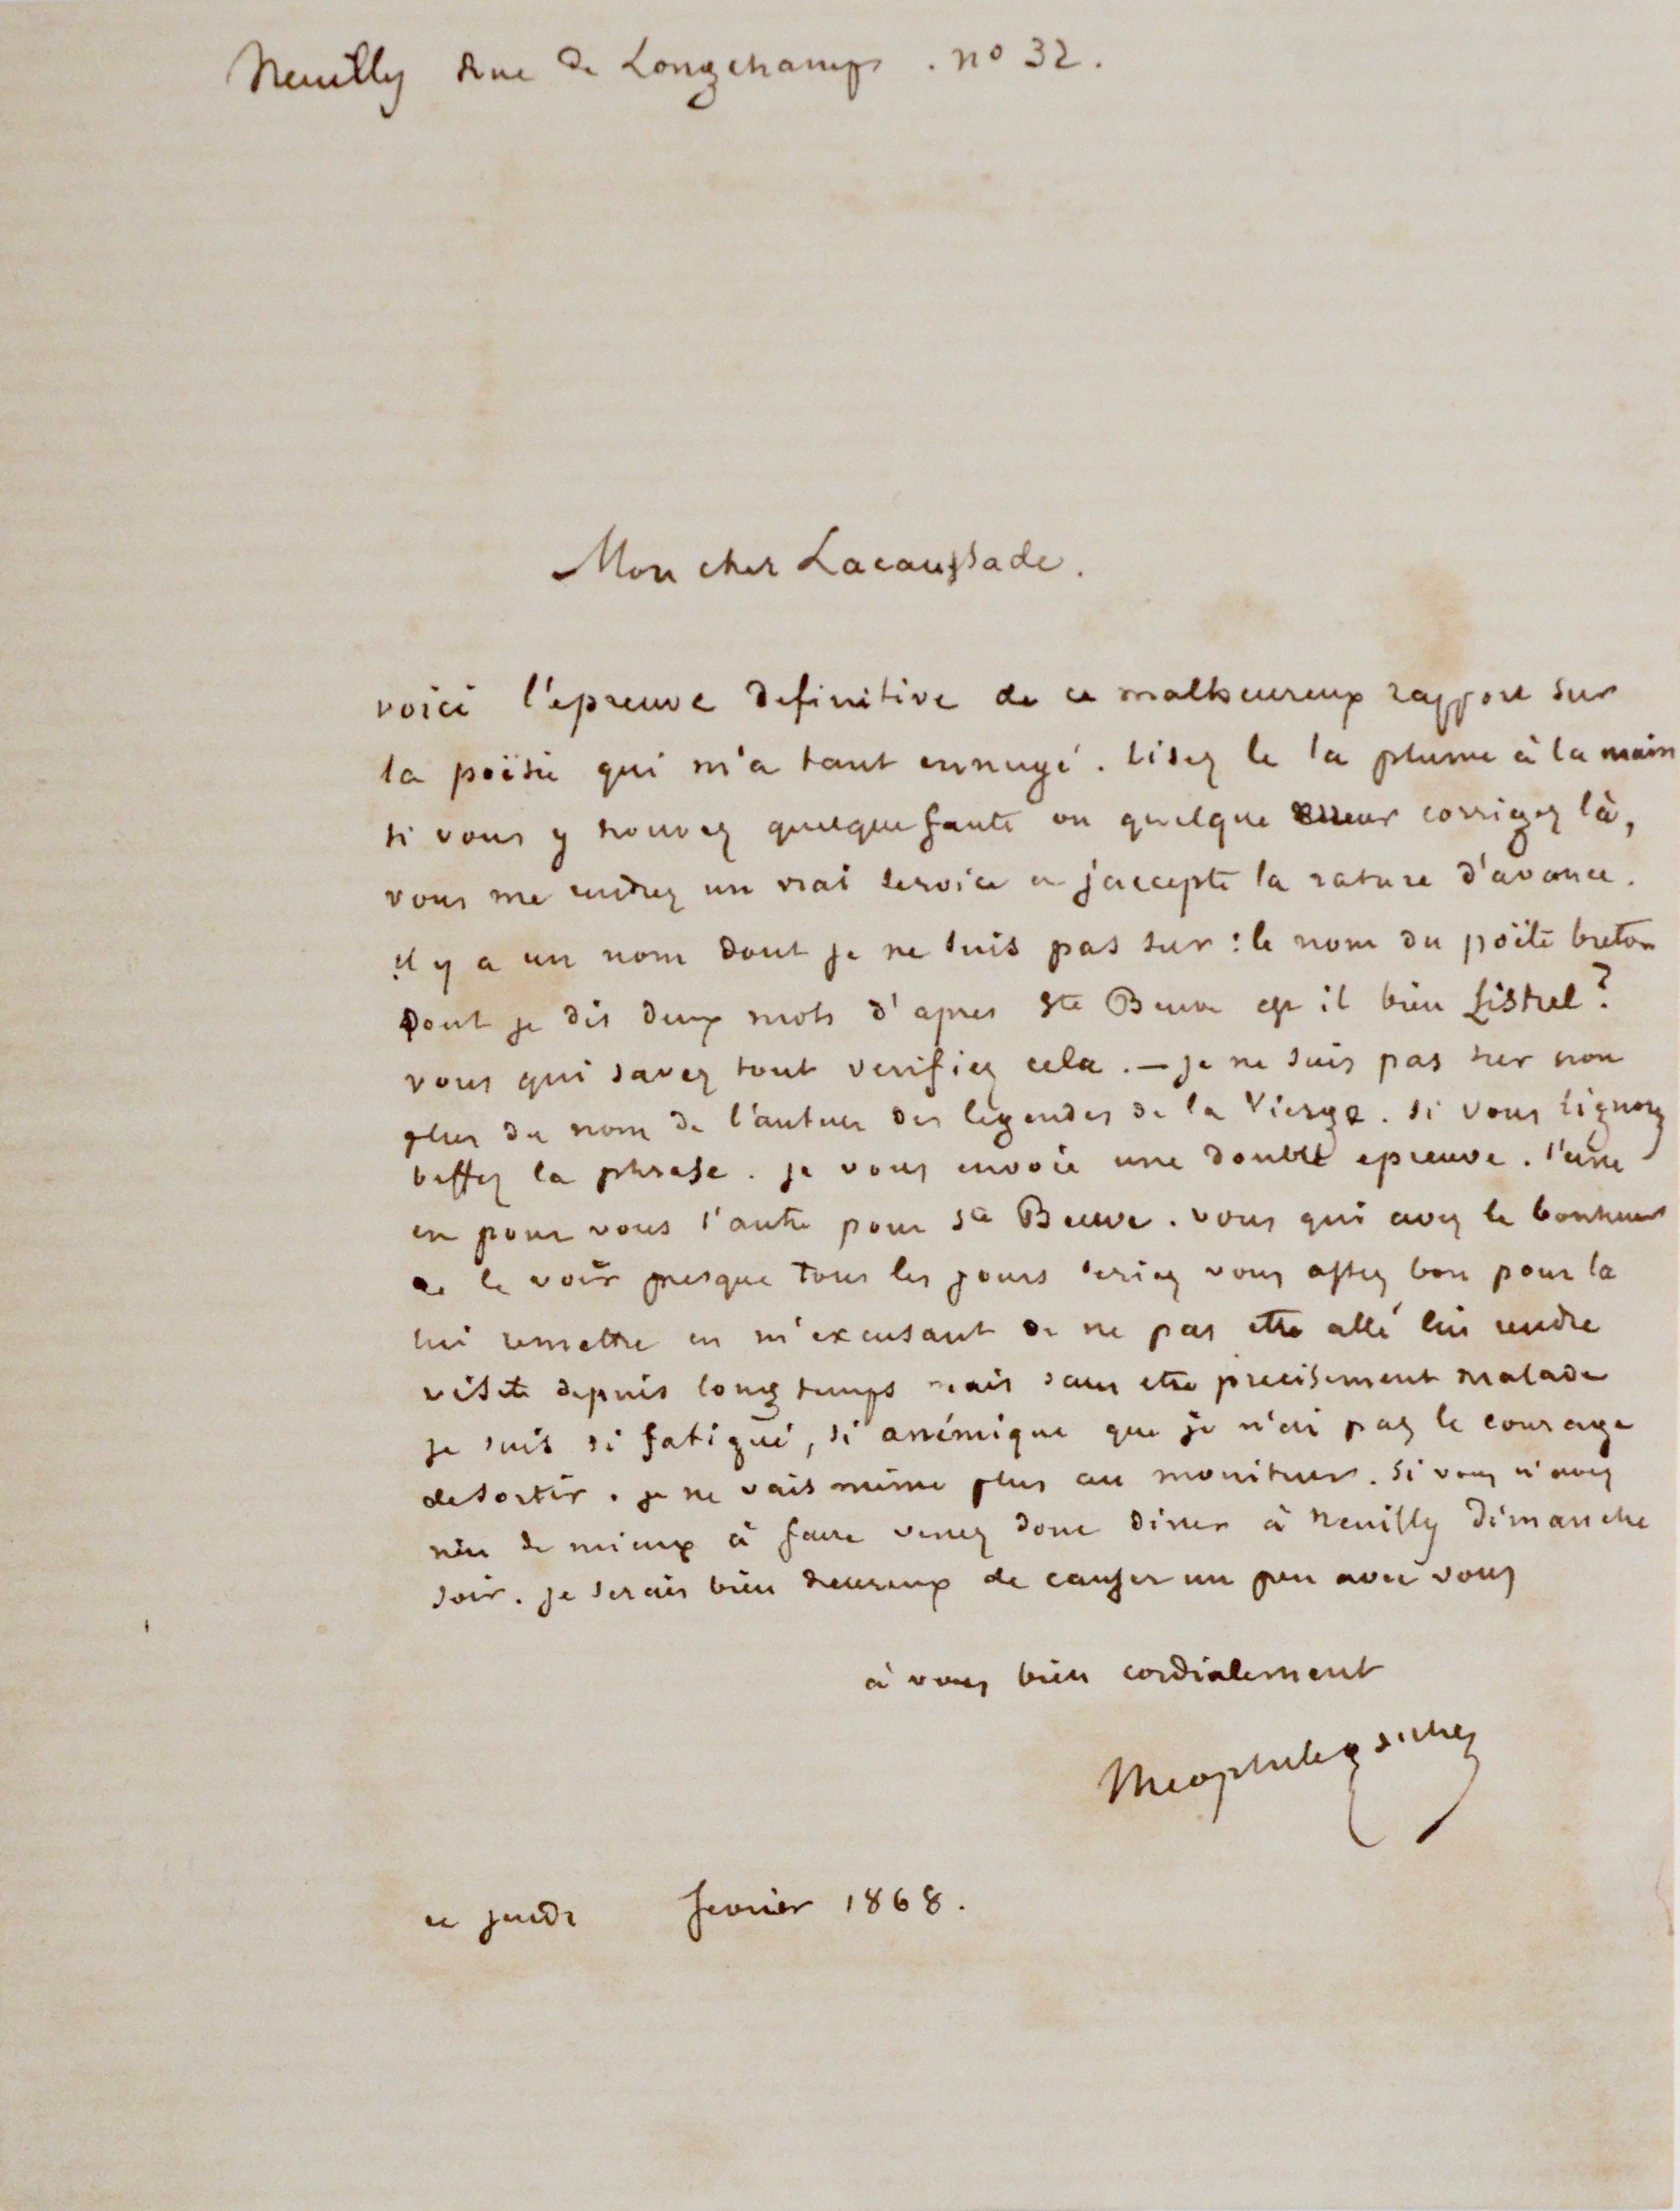 Neuilly Rue de Longchamps . nº 32.
Mon cher Lacaussade.
voici l'epreuve definitive de ce malheureux rapport sur
la poësie qui m'a tant ennuyé. Lisez le la plume à la main
si vous y trouvez quelque faute ou quelque erreur corrigez là,
vous me rendrez un vrai service et j'accepte la rature d'avance.
il y a un nom dont je ne suis pas sur : le nom du poëte breton
dont je dis deux mots d'apres Ste Beuve est il bien
vous qui savez tout verifiez cela. — je ne suis pas sur non
plus du nom de l'auteur des legendes de la Vierge. si vous l'ignorez
biffez la phrase. je vous envoie une double epreuve. l'une
est pour vous l'autre pour Ste Beuve. vous qui avez le bonheur
de le voir presque tous les jours seriez vous assez bon pour la
lui remettre en m'excusant de ne pas etre allé lui rendre
visite depuis longtemps mais sans etre precisement malade
je suis si fatigué, si anémique que je n'ai pas le courage
de sortir. je ne vais même plus au moniteur. si vous n'avez
rien de mieux à faire venez donc diner à Neuilly dimanche
soir. je serais bien heureux de causer un peu avec vous
à vous bien cordialement
Theophile Gautier
ce jeudi fevrier 1868.